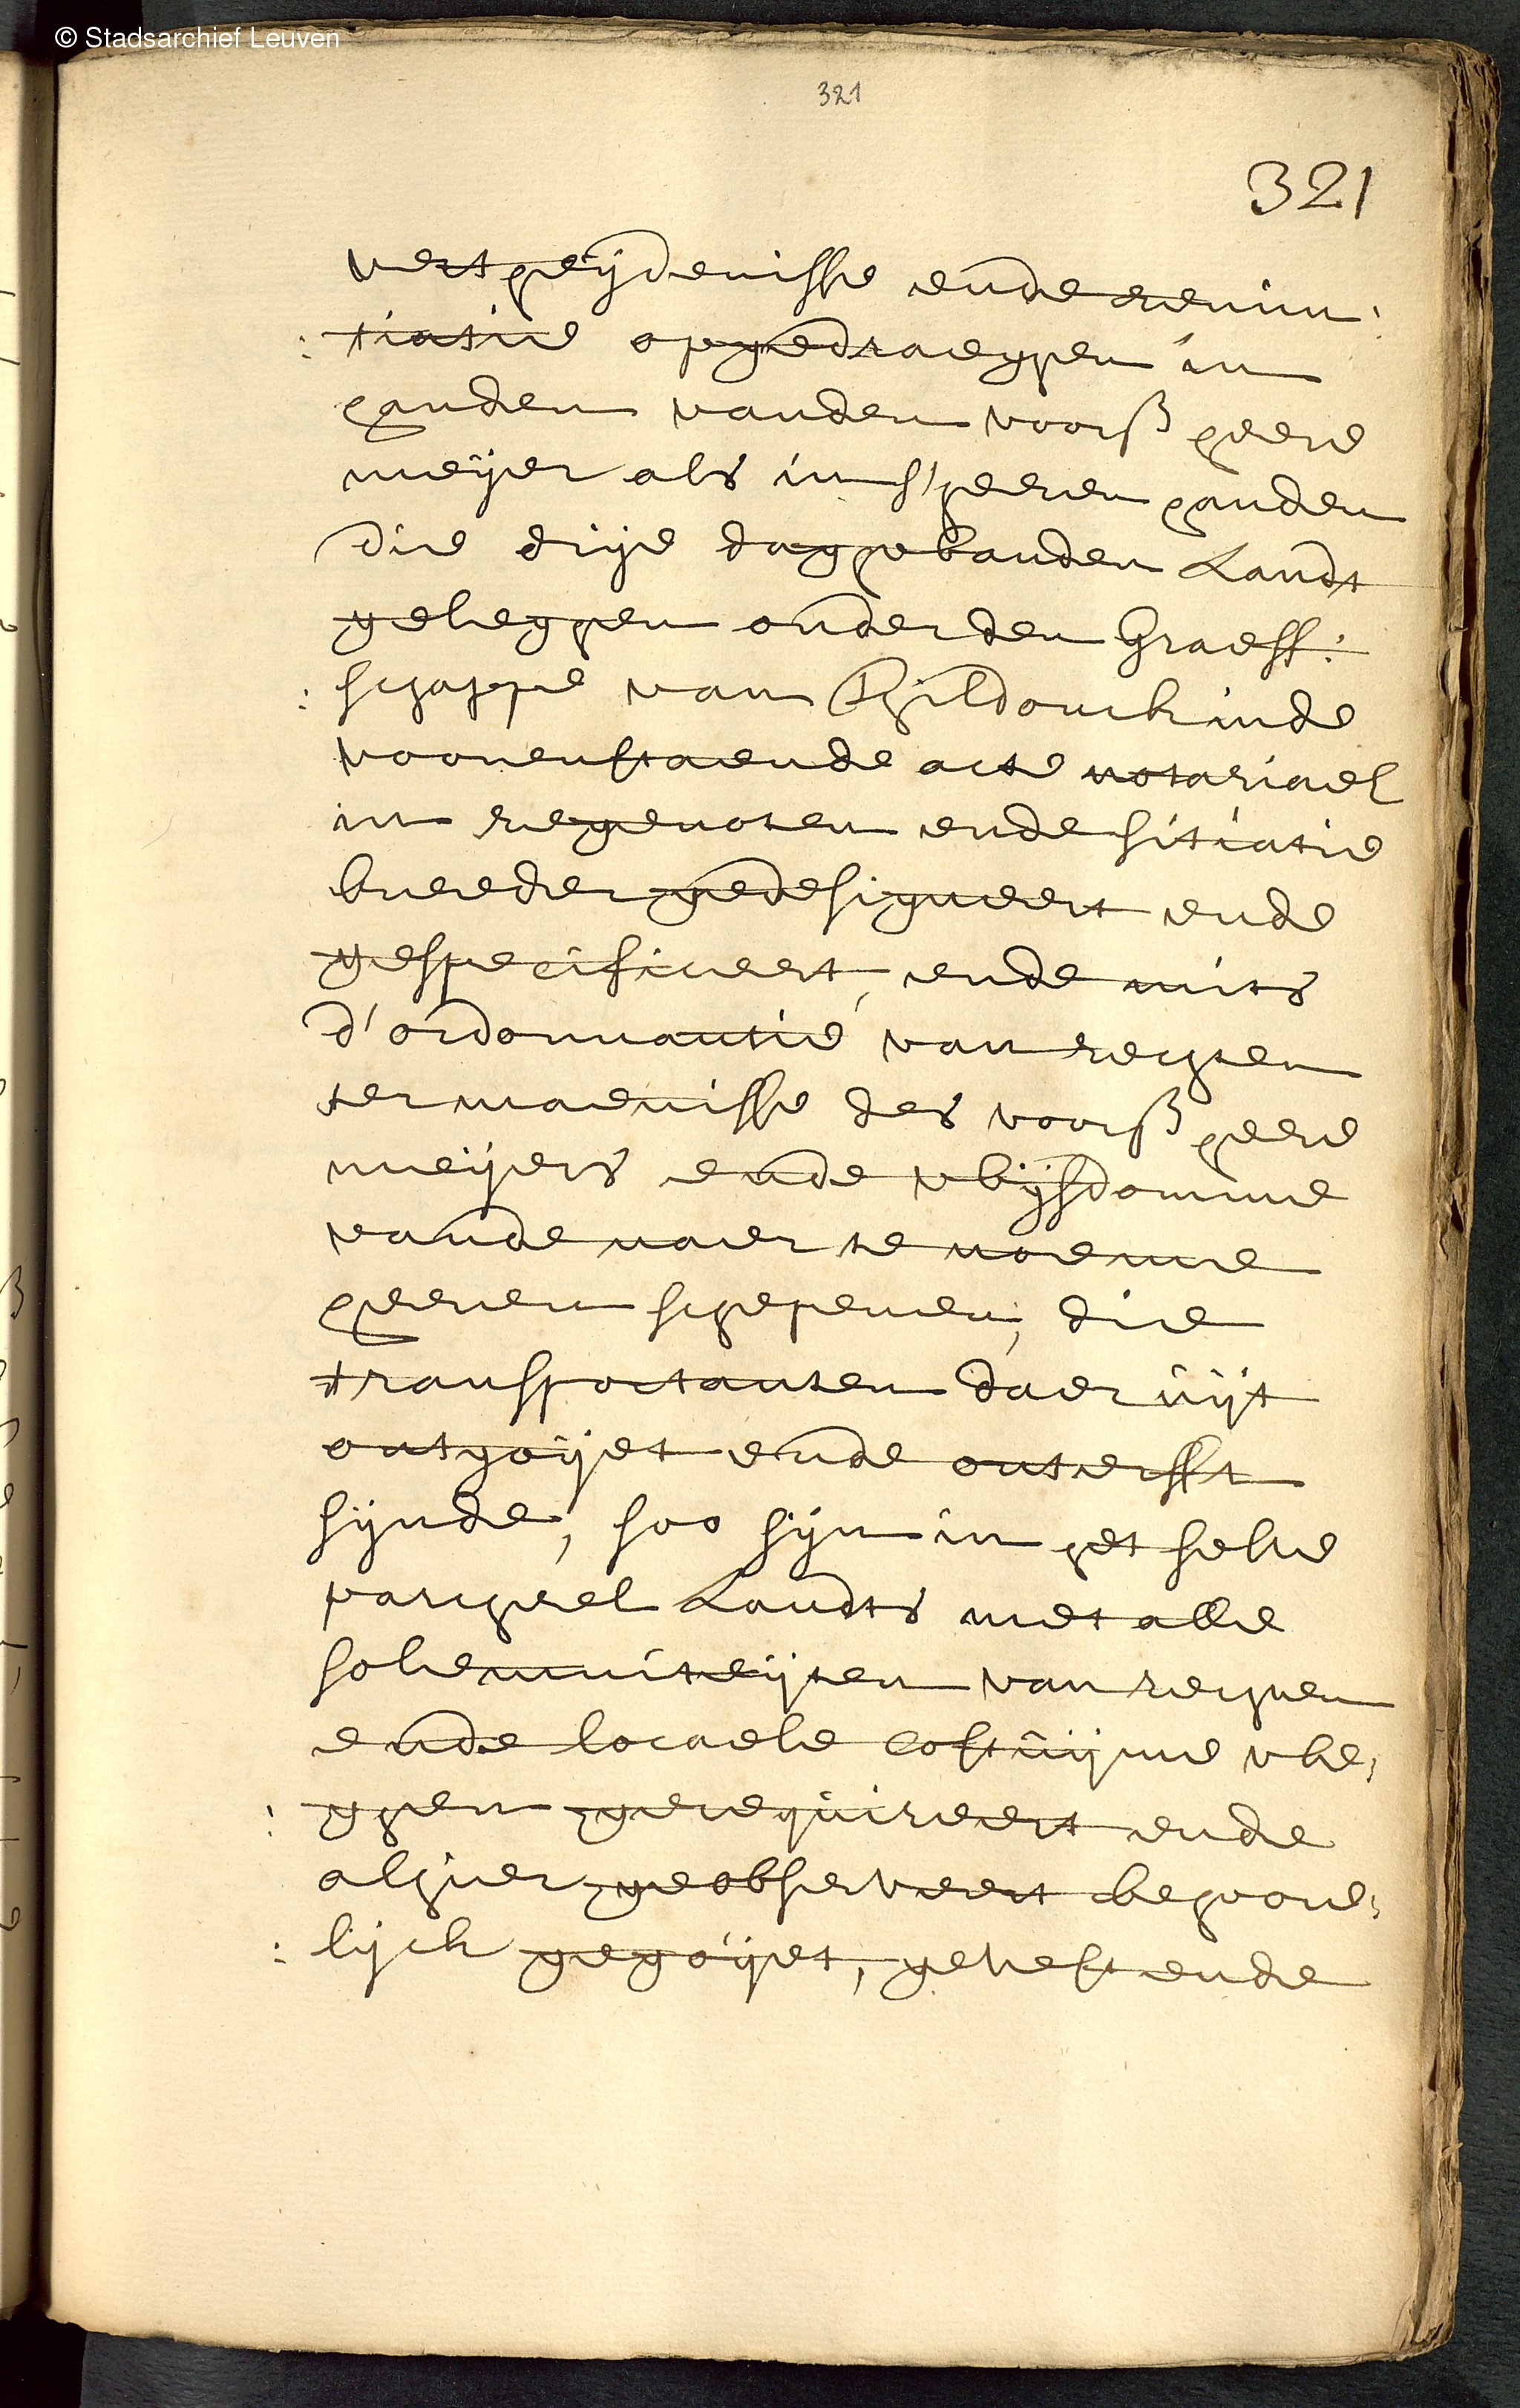 © Stadsarchief Leuven
321
321
vertheijdenisse ende renun:
:tiatie opgedraeghen in
handen vanden voorss heere
meijer als in s'heeren handen
die drije daghwanden Landt
geleghen onder den Graeff:
:schappe van Thildonck inde
vooren staende acte notariael
in regenoten ende sitiatie
breeder gedesigneert ende
gespecificeert, ende mits
d'ordonnantie van rechten
ter maenisse des voorss heere
meijers ende wijsdomme
vande naer te noeme
heeren schepenen, die
transportanten daer uijt
ontgoijet ende onterfft
sijnde, soo sijn in het selve
parcheel Landts met alle
solemniteijten van rechten
ende locaele costuijme we:
:ghen gerequireert ende
alhier geobserveert behoore:
:lijck gegoijet, gevest ende